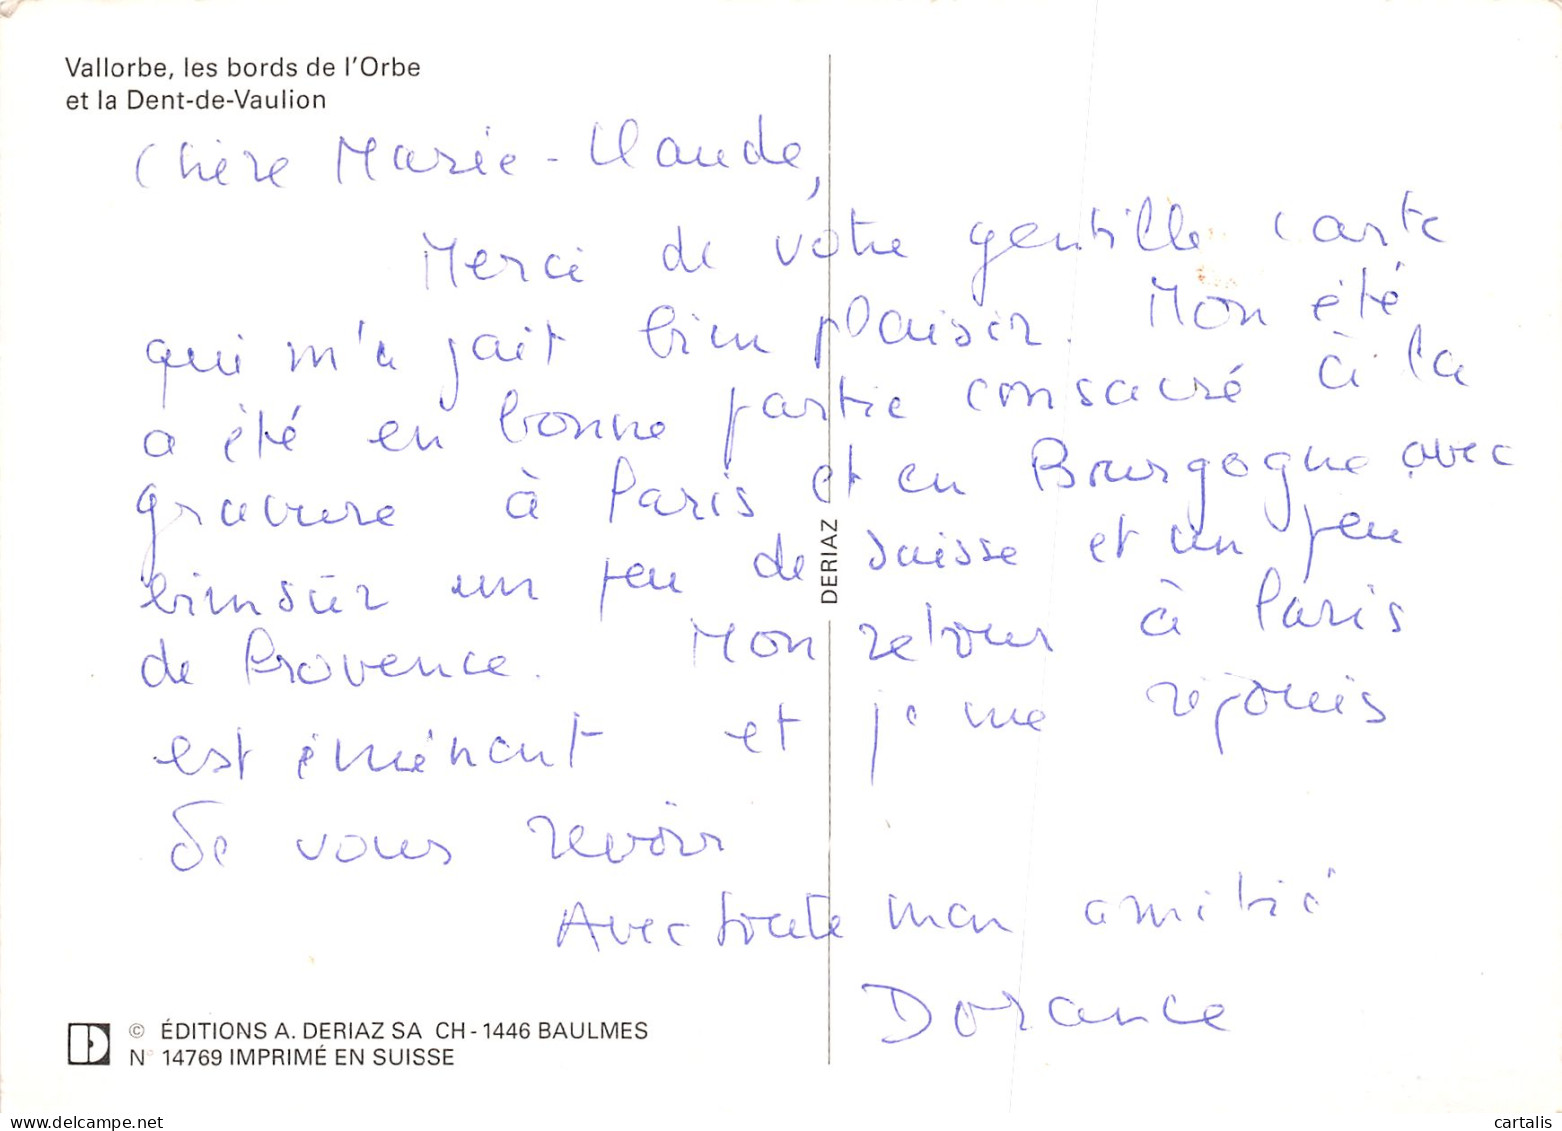 Vallorbe, les bords de l'Orbe
et la Dent-de-Vaulion
Chère Marie-Claude,
Merci de votre gentille carte
qui m'a fait bien plaisir. Mon été
a été en bonne partie consacré à la
gravure à Paris et en Bourgogne avec
biensûr un peu de suisse et un peu
de Provence. Mon retour à Paris
est éminent et je me réjouis
de vous revoir
Avec toute mon amitié
Dorance
DERIAZ
© ÉDITIONS A. DERIAZ SA CH-1446 BAULMES
N° 14769 IMPRIMÉ EN SUISSE
cartalis